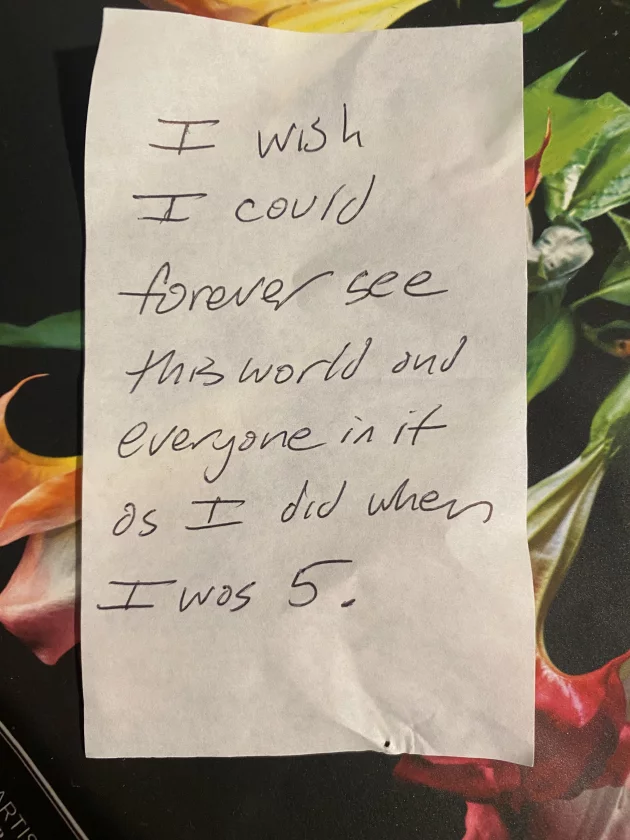 I wish
I could
forever see
this world and
everyone in it
as I did when
I was 5.
ARTIS